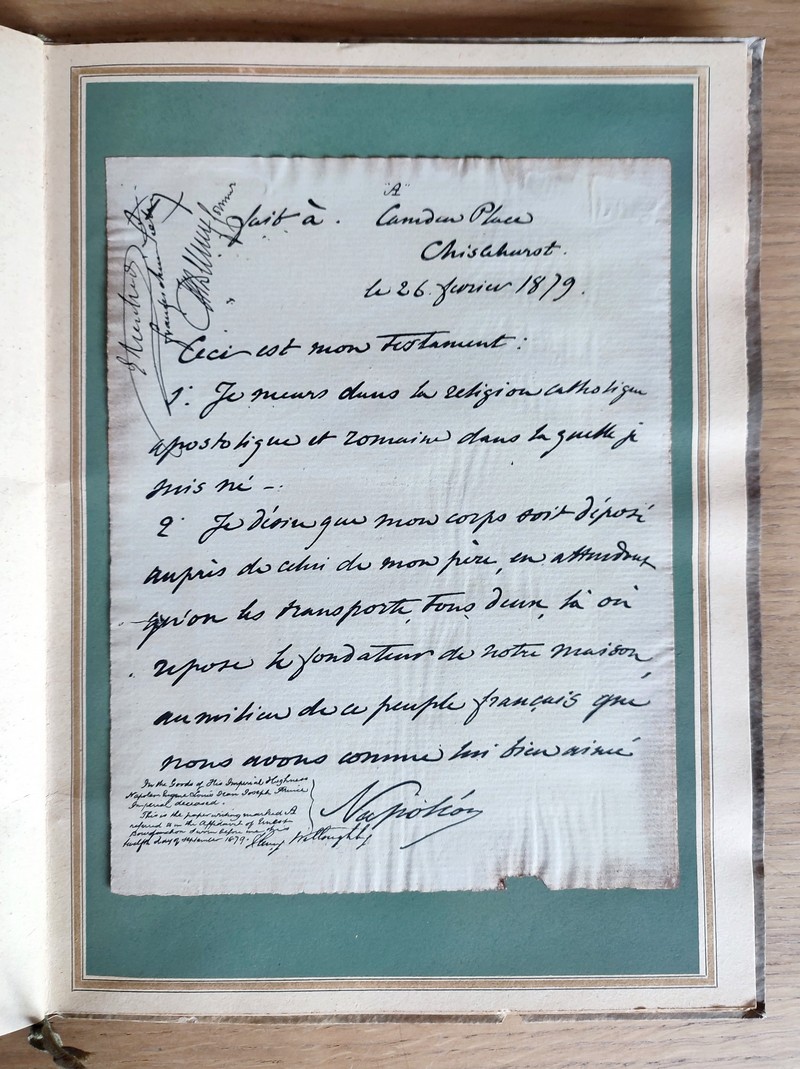 "A"
Fait à. Camden Place
Chislehurst.
le 26. fevrier 1879.
Ceci est mon testament :
1° Je meurs dans la religion catholique
apostolique et romaine dans la quelle je
suis né -.
2° Je désire que mon corps soit déposé
auprès de celui de mon père, en attendant
qu'on les transporte, tous deux, là où
repose le fondateur de notre maison,
au milieu de ce peuple français que
nous avons comme lui bien aimé
Napoléon
In the Goods of His Imperial Highness
Napoleon Eugene Louis Jean Joseph Prince
Imperial deceased.
This is the paper writing marked A
referred to in the Affidavit of Ernest
sworn before me this
twelfth day of September 1879.
Henry Willoughby